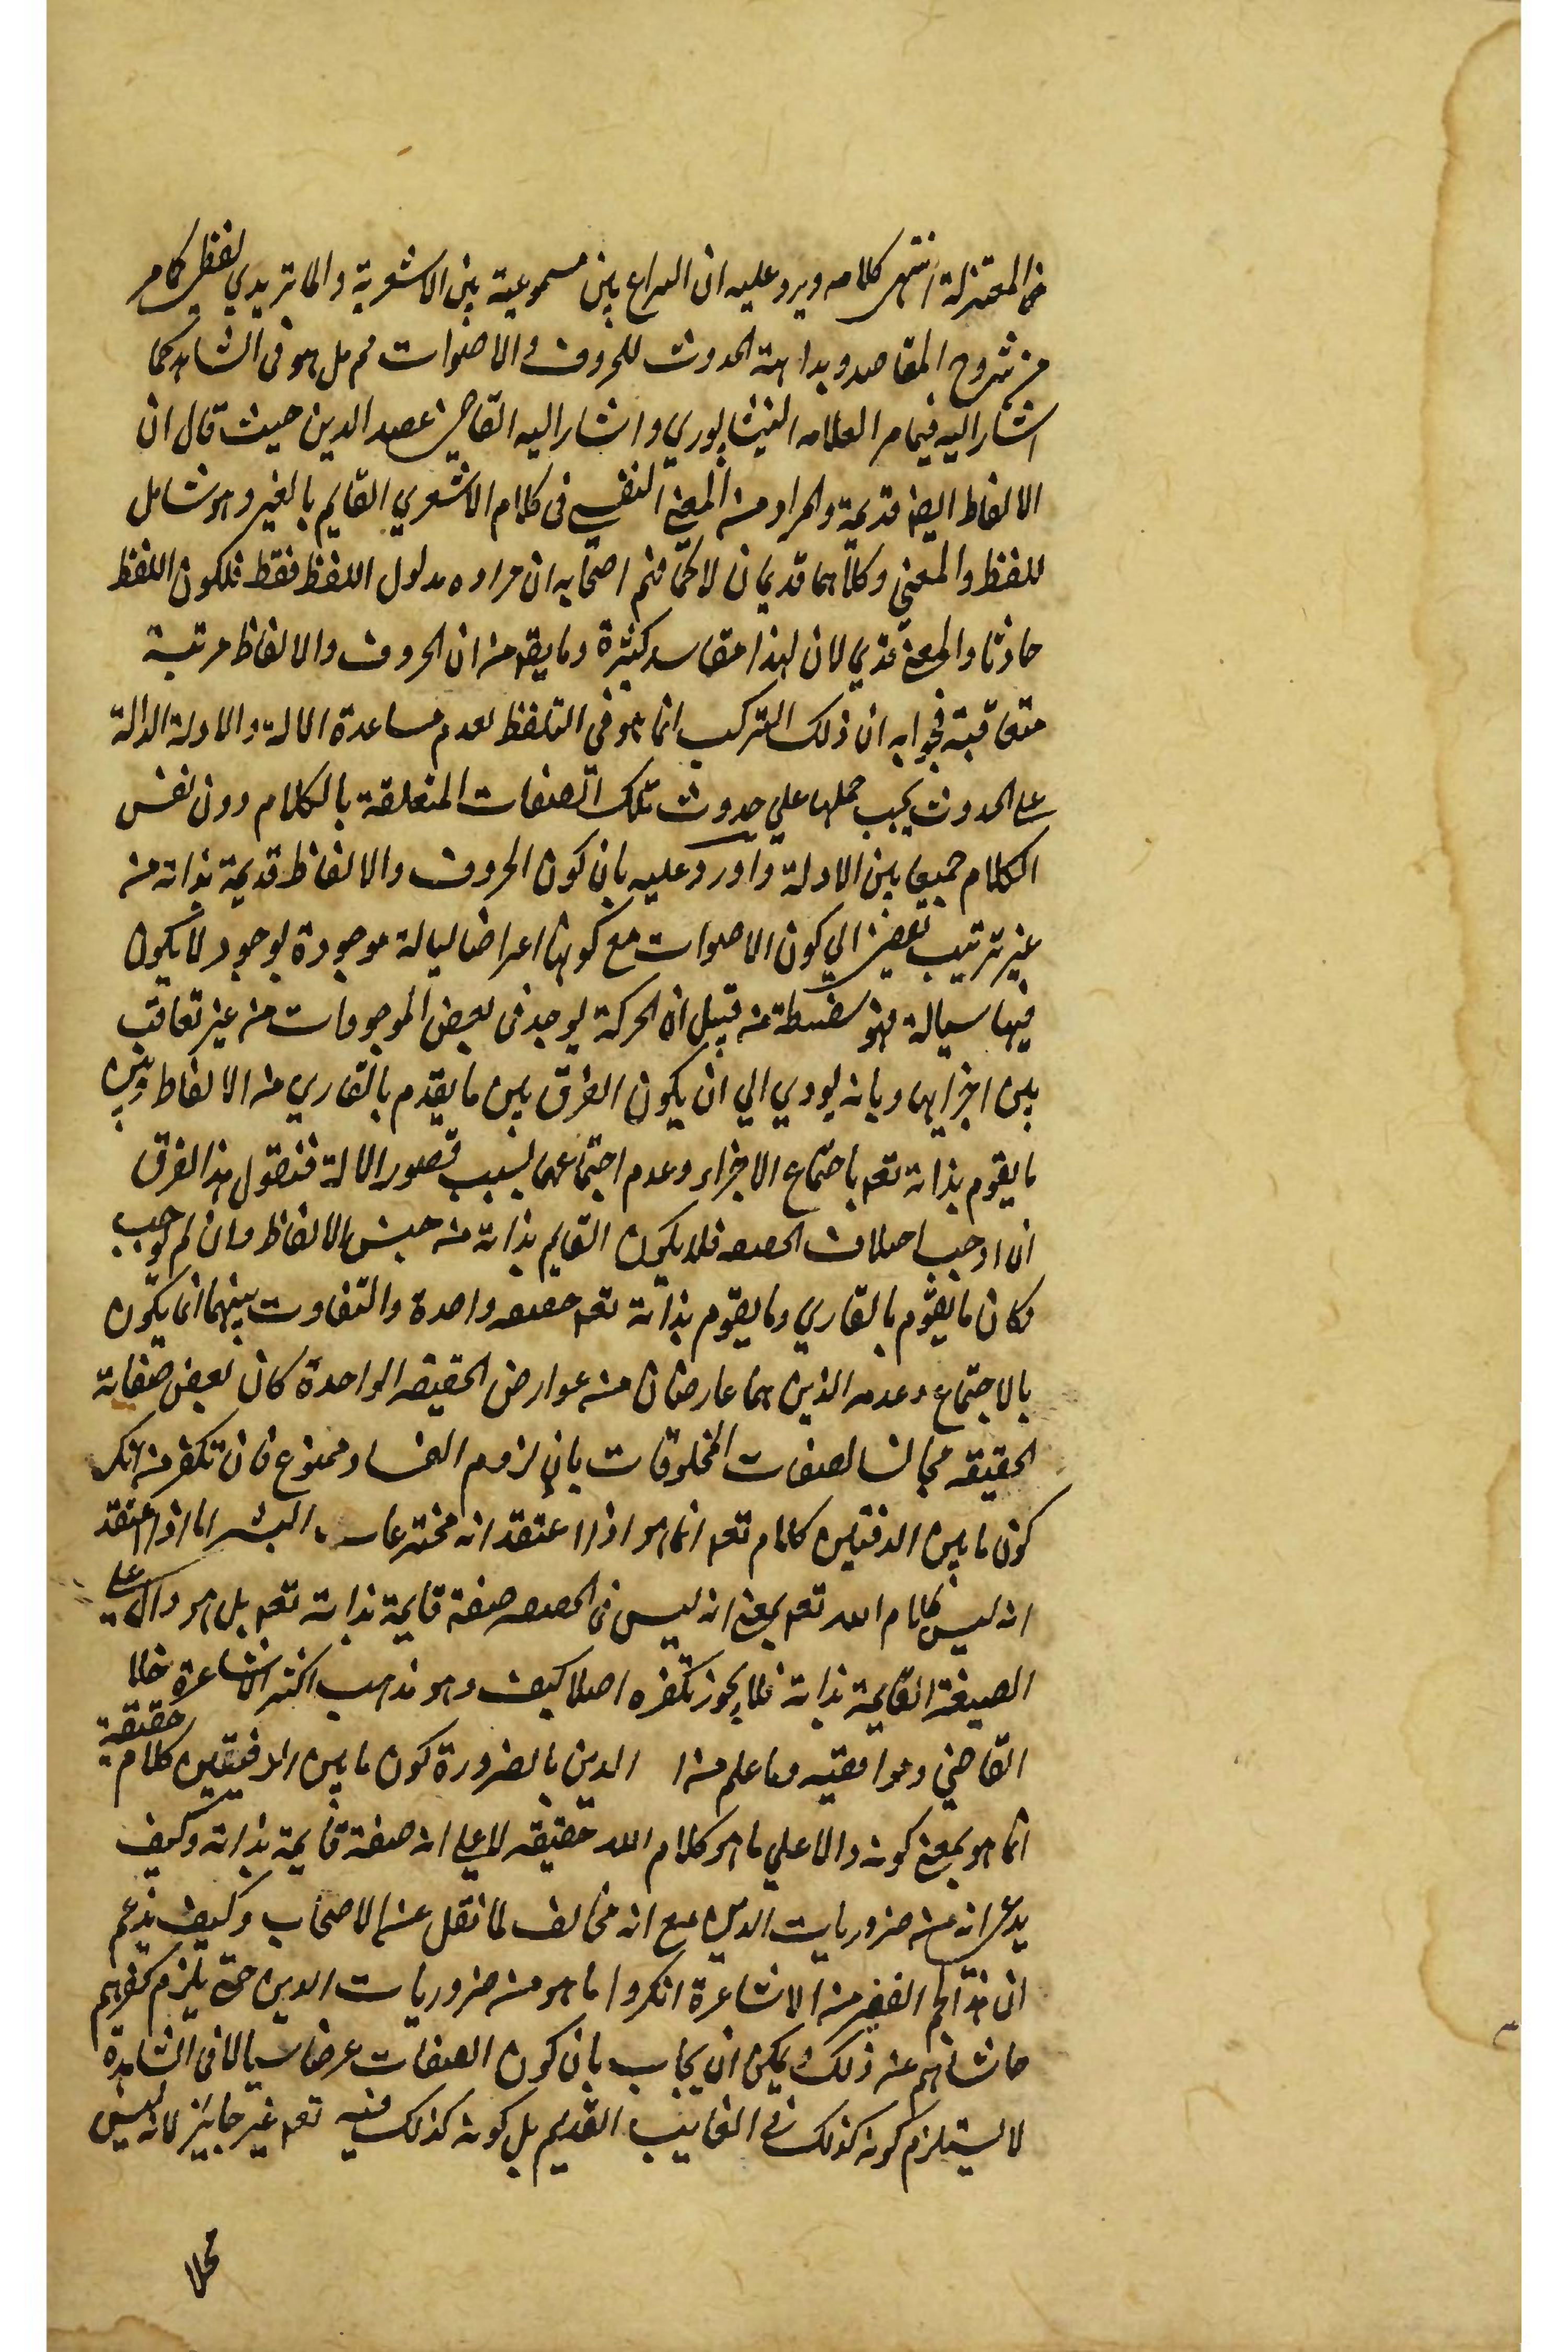 من المعتزلة انتهى كلامه ويرد عليه ان النزاع بين مسموعية بين الاشعرية والماتريدي لفظي كما مر
من شروح المقاصد وبداهة الحدوث للحروف والاصوات مم بل هو في الشاهد كما
اشار اليه فيما مر العلامه النيشابوري واشار اليه القاضي عضد الدين حيث قال ان
الالفاظ ايضا قديمة والمراد من المعنى النفسي في كلام الاشعري القايم بالغير وهو شامل
للفظ والمعنى وكلاهما قديمان لا كما فهم اصحابه ان مراده مدلول اللفظ فقط فلكون اللفظ
حادثا والمعنى قديم لان لهذا مفاسد كثيرة وما يقم من ان الحروف والالفاظ مرتبة
متعاقبة فجوابه ان ذلك التركيب انما هو في التلفظ لعدم مساعدة الالة والادلة الدالة
على الحدوث يجب حملها علي حدوث تلك الصفات المتعلقة بالكلام دون نفس
الكلام جميعا بين الادلة واورد عليه بان كون الحروف والالفاظ قديمة بذاته من
غير ترتيب يفضي الي كون الاصوات مع كونها اعراضا سيالة موجودة بوجود لا يكون
فيها سيالة فهو سفسطة من قبيل ان الحركة يوجد في بعض الموجودات من غير تعاقب
بين اجزايها وبانه يودي الي ان يكون الفرق بين ما يقوم بالقاري من الالفاظ وبين
ما يقوم بذاته تعم باجتماع الاجزاء وعدم اجتماعها بسبب قصور الالة فنقول هذا الفرق
ان اوجب اختلاف الحقيقه فلا يكون القايم بذاته من جنس الالفاظ وان لم يوجب
وكان ما يقوم بالقاري وما يقوم بذاته تعم حقيقه واحدة والتفاوت بينهما انما يكون
بالاجتماع وعدمه الذين هما عارضان من عوارض الحقيقه الواحدة كان بعض صفاته
الحقيقه مجانسا لصفات المخلوقات بان لزوم الفساد ممنوع فان تكفر من انكر
كون ما بين الدفتين كلام تعم انما هو اذا اعتقد انه مخترعات البشر اما اذا اعتقد
انه ليس كلام الله تعم بمعنى انه ليس في الحقيقه صفة قايمة بذاته تعم بل هو دال على
الصيغة القايمة بذاته فلا يجوز تكفره اصلا كيف وهو مذهب اكثر الاشاعرة خلا
القاضي وموافقيه وما علم من الدين بالضرورة كون ما بين الدفتين كلام حقيقة
انما هو بمعنى كونه دالا علي ما هو كلام الله حقيقه لا علي انه صفة قايمة بذاته وكيف
يدعى انه من ضروريات الدين مع انه مخالف لما نقل عن الاصحاب وكيف يزعم
ان هذا الجم الغفير من الاشاعرة انكروا ما هو من ضروريات الدين حتى يلزم كفرهم
حاشاهم عن ذلك ويمكن ان يجاب بان كون الصفات عرضا سيالا في الشاهد
لا يستلزم كونه كذلك في الغايب القديم بل كونه كذلك فيه تعم غير جايز لانه ليس
محلا